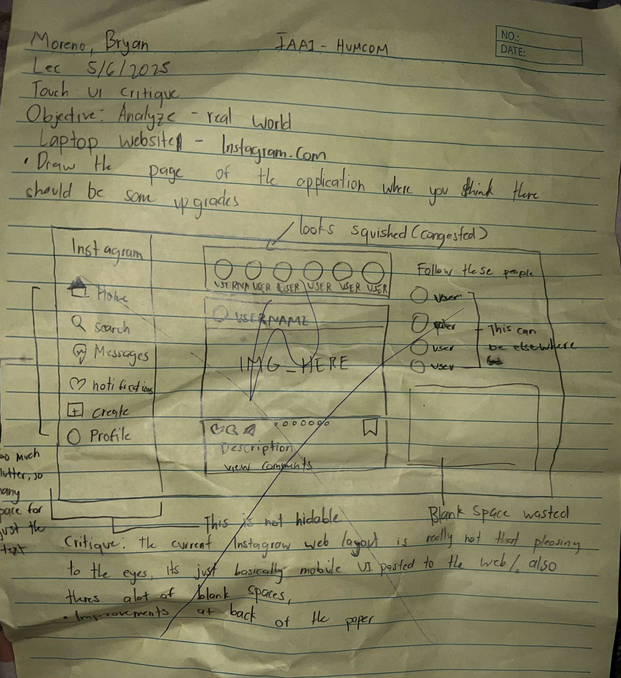 Moreno, Bryan
IAAI - HUMCOM
NO.:
DATE:
Lec 5/6/2025
Touch UI critique
Objective: Analyze - real world
Laptop website - Instagram.com
• Draw the page of the application where you think there
should be some upgrades
looks squished (congested)
Instagram
Home
Search
Messages
notifications
create
Profile
USERNA USER USER USER USER USER
USERNAME
IMG_HERE
Description
view comments
Follow these people
user
user
user
user
This can
be elsewhere
oo much
lutter, so
any
pace for
just the
text
This is not hidable
Blank Space wasted
Critique: the current Instagram web layout is really not that pleasing
to the eyes, its just basically mobile UI pasted to the web/. also
theres alot of blank spaces,
• Improvements at back of the paper